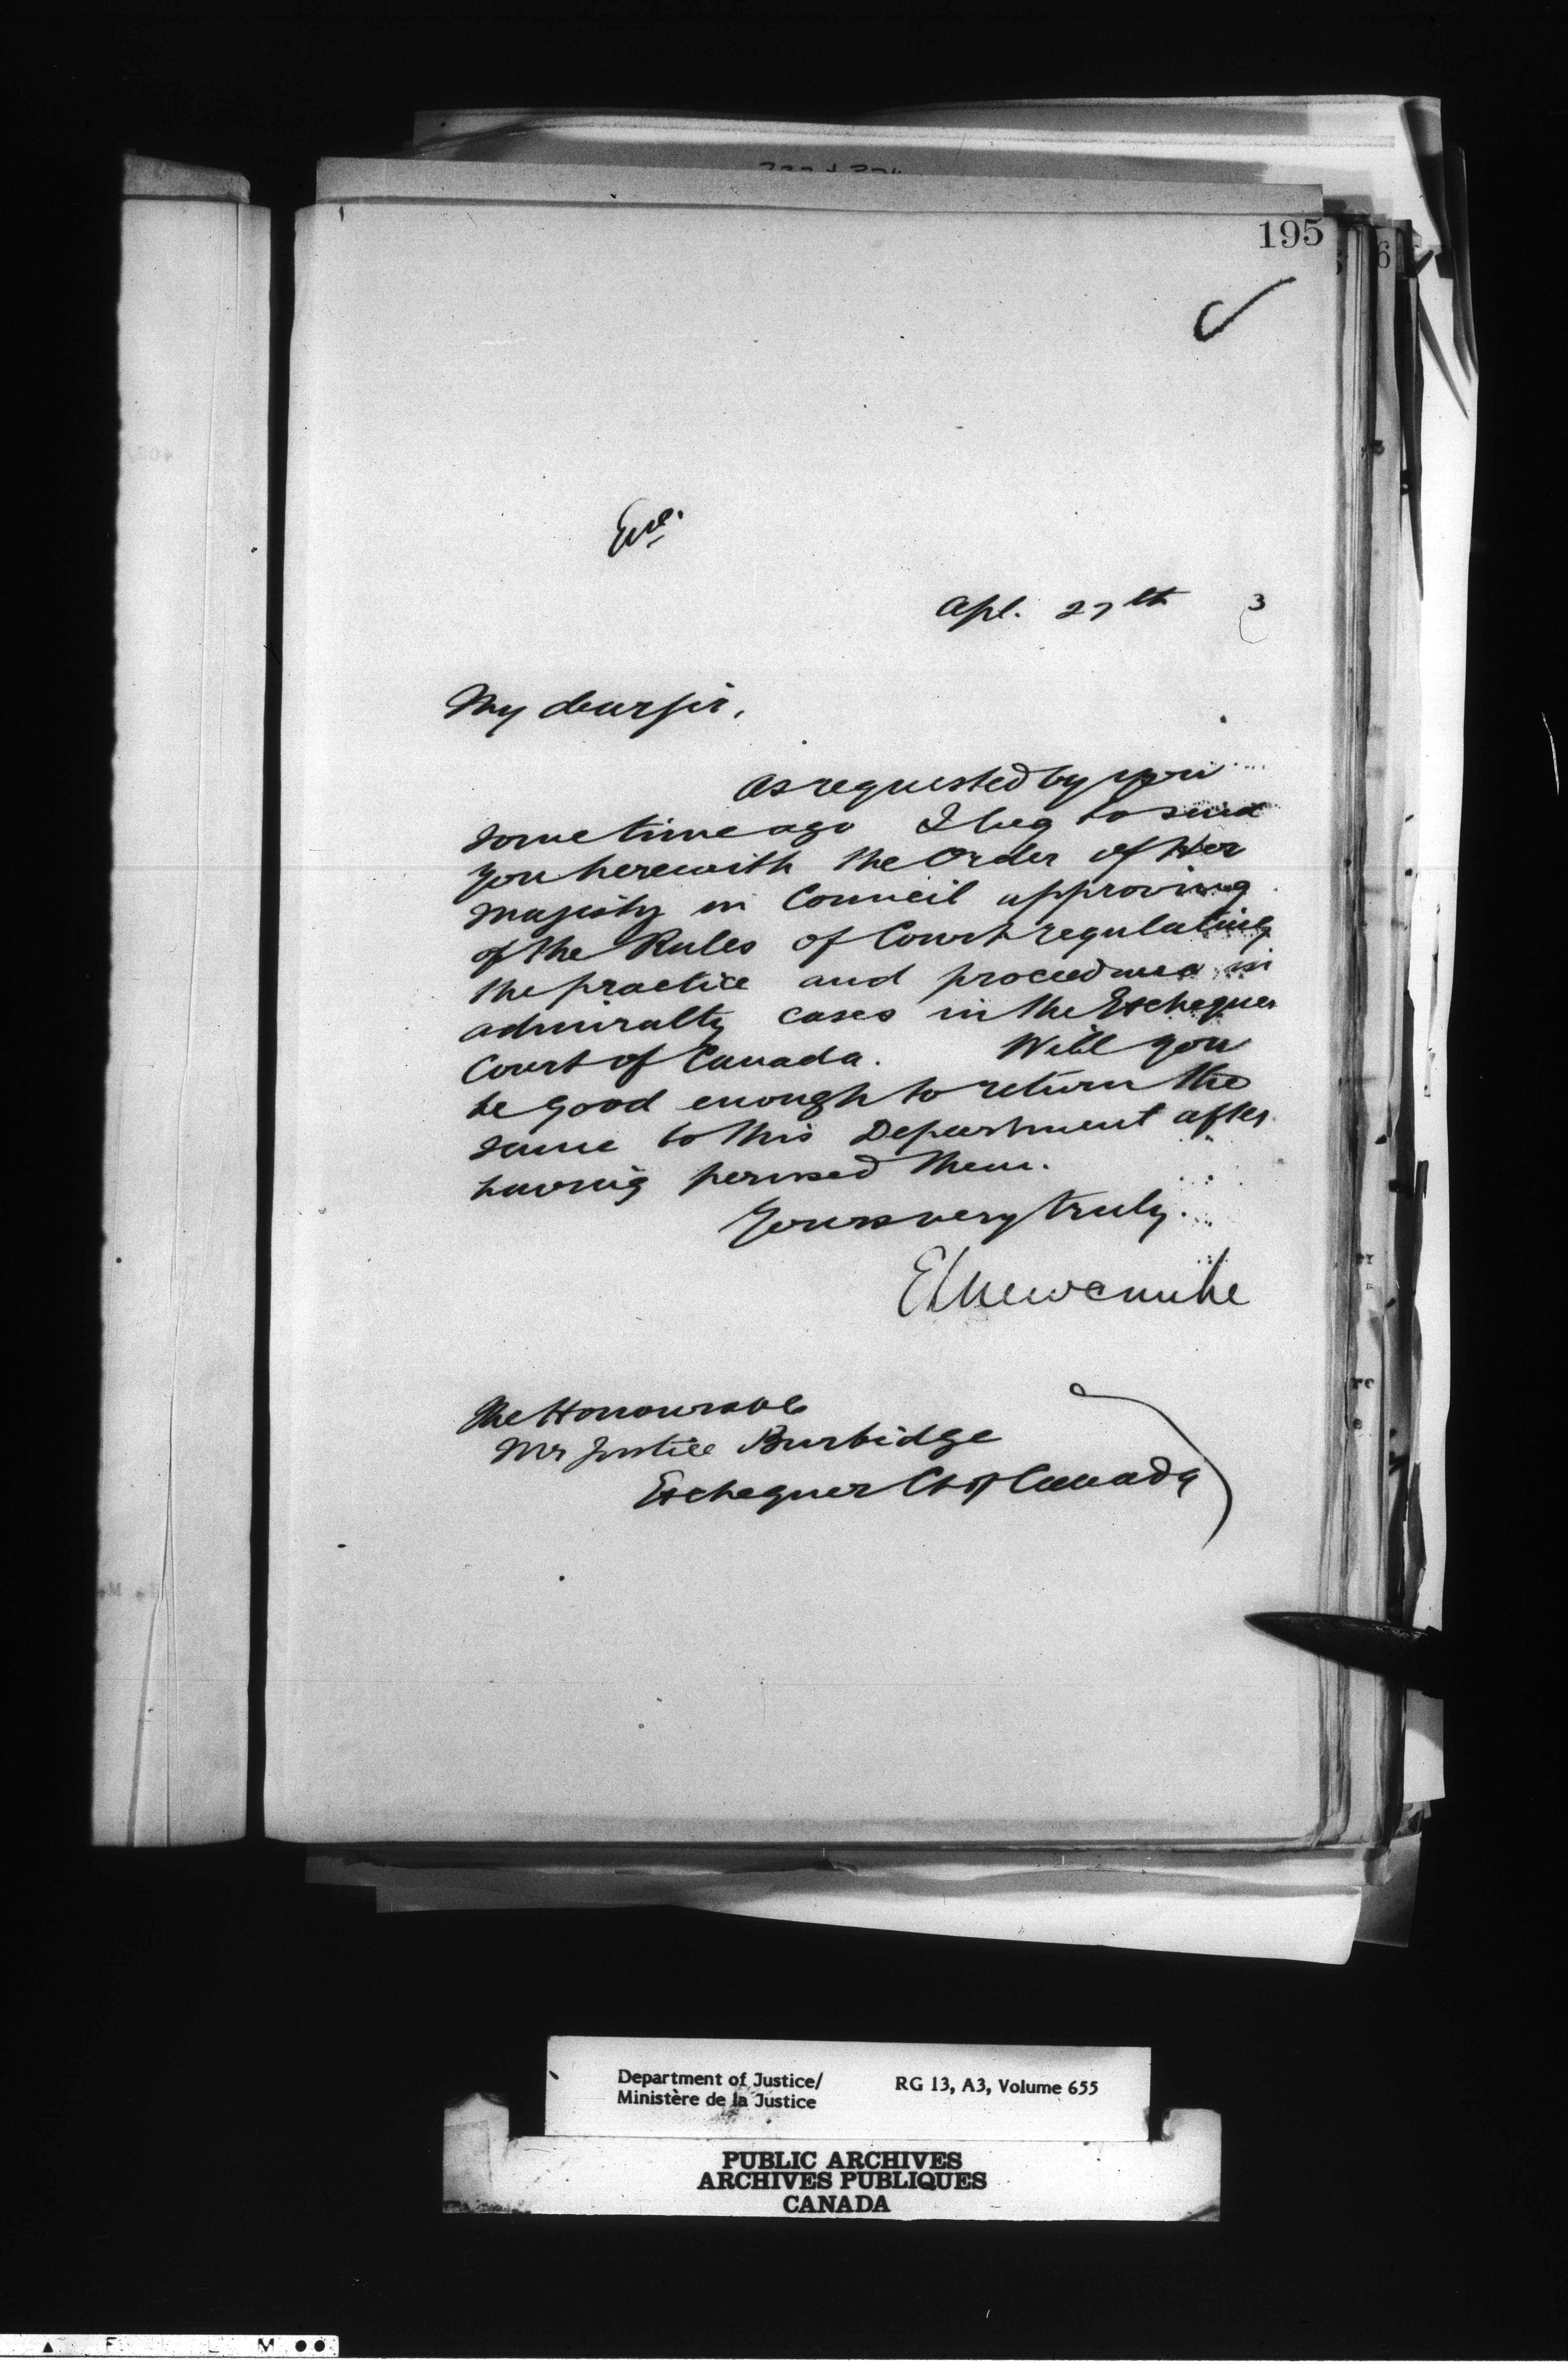 195
Enc.
Apl. 27th 3
My dear sir,
As requested by you
some time ago I beg to send
you herewith the Order of Her
Majesty in Council approving
of the Rules of Court regulating
the practice and procedure in
admiralty cases in the Exchequer
Court of Canada. Will you
be good enough to return the
same to this Department after
having perused them.
Yours very truly.
E L Newcombe
The Honourable
Mr Justice Burbidge
Exchequer Ct of Canada
Department of Justice/
Ministère de la Justice
RG 13, A3, Volume 655
PUBLIC ARCHIVES
ARCHIVES PUBLIQUES
CANADA